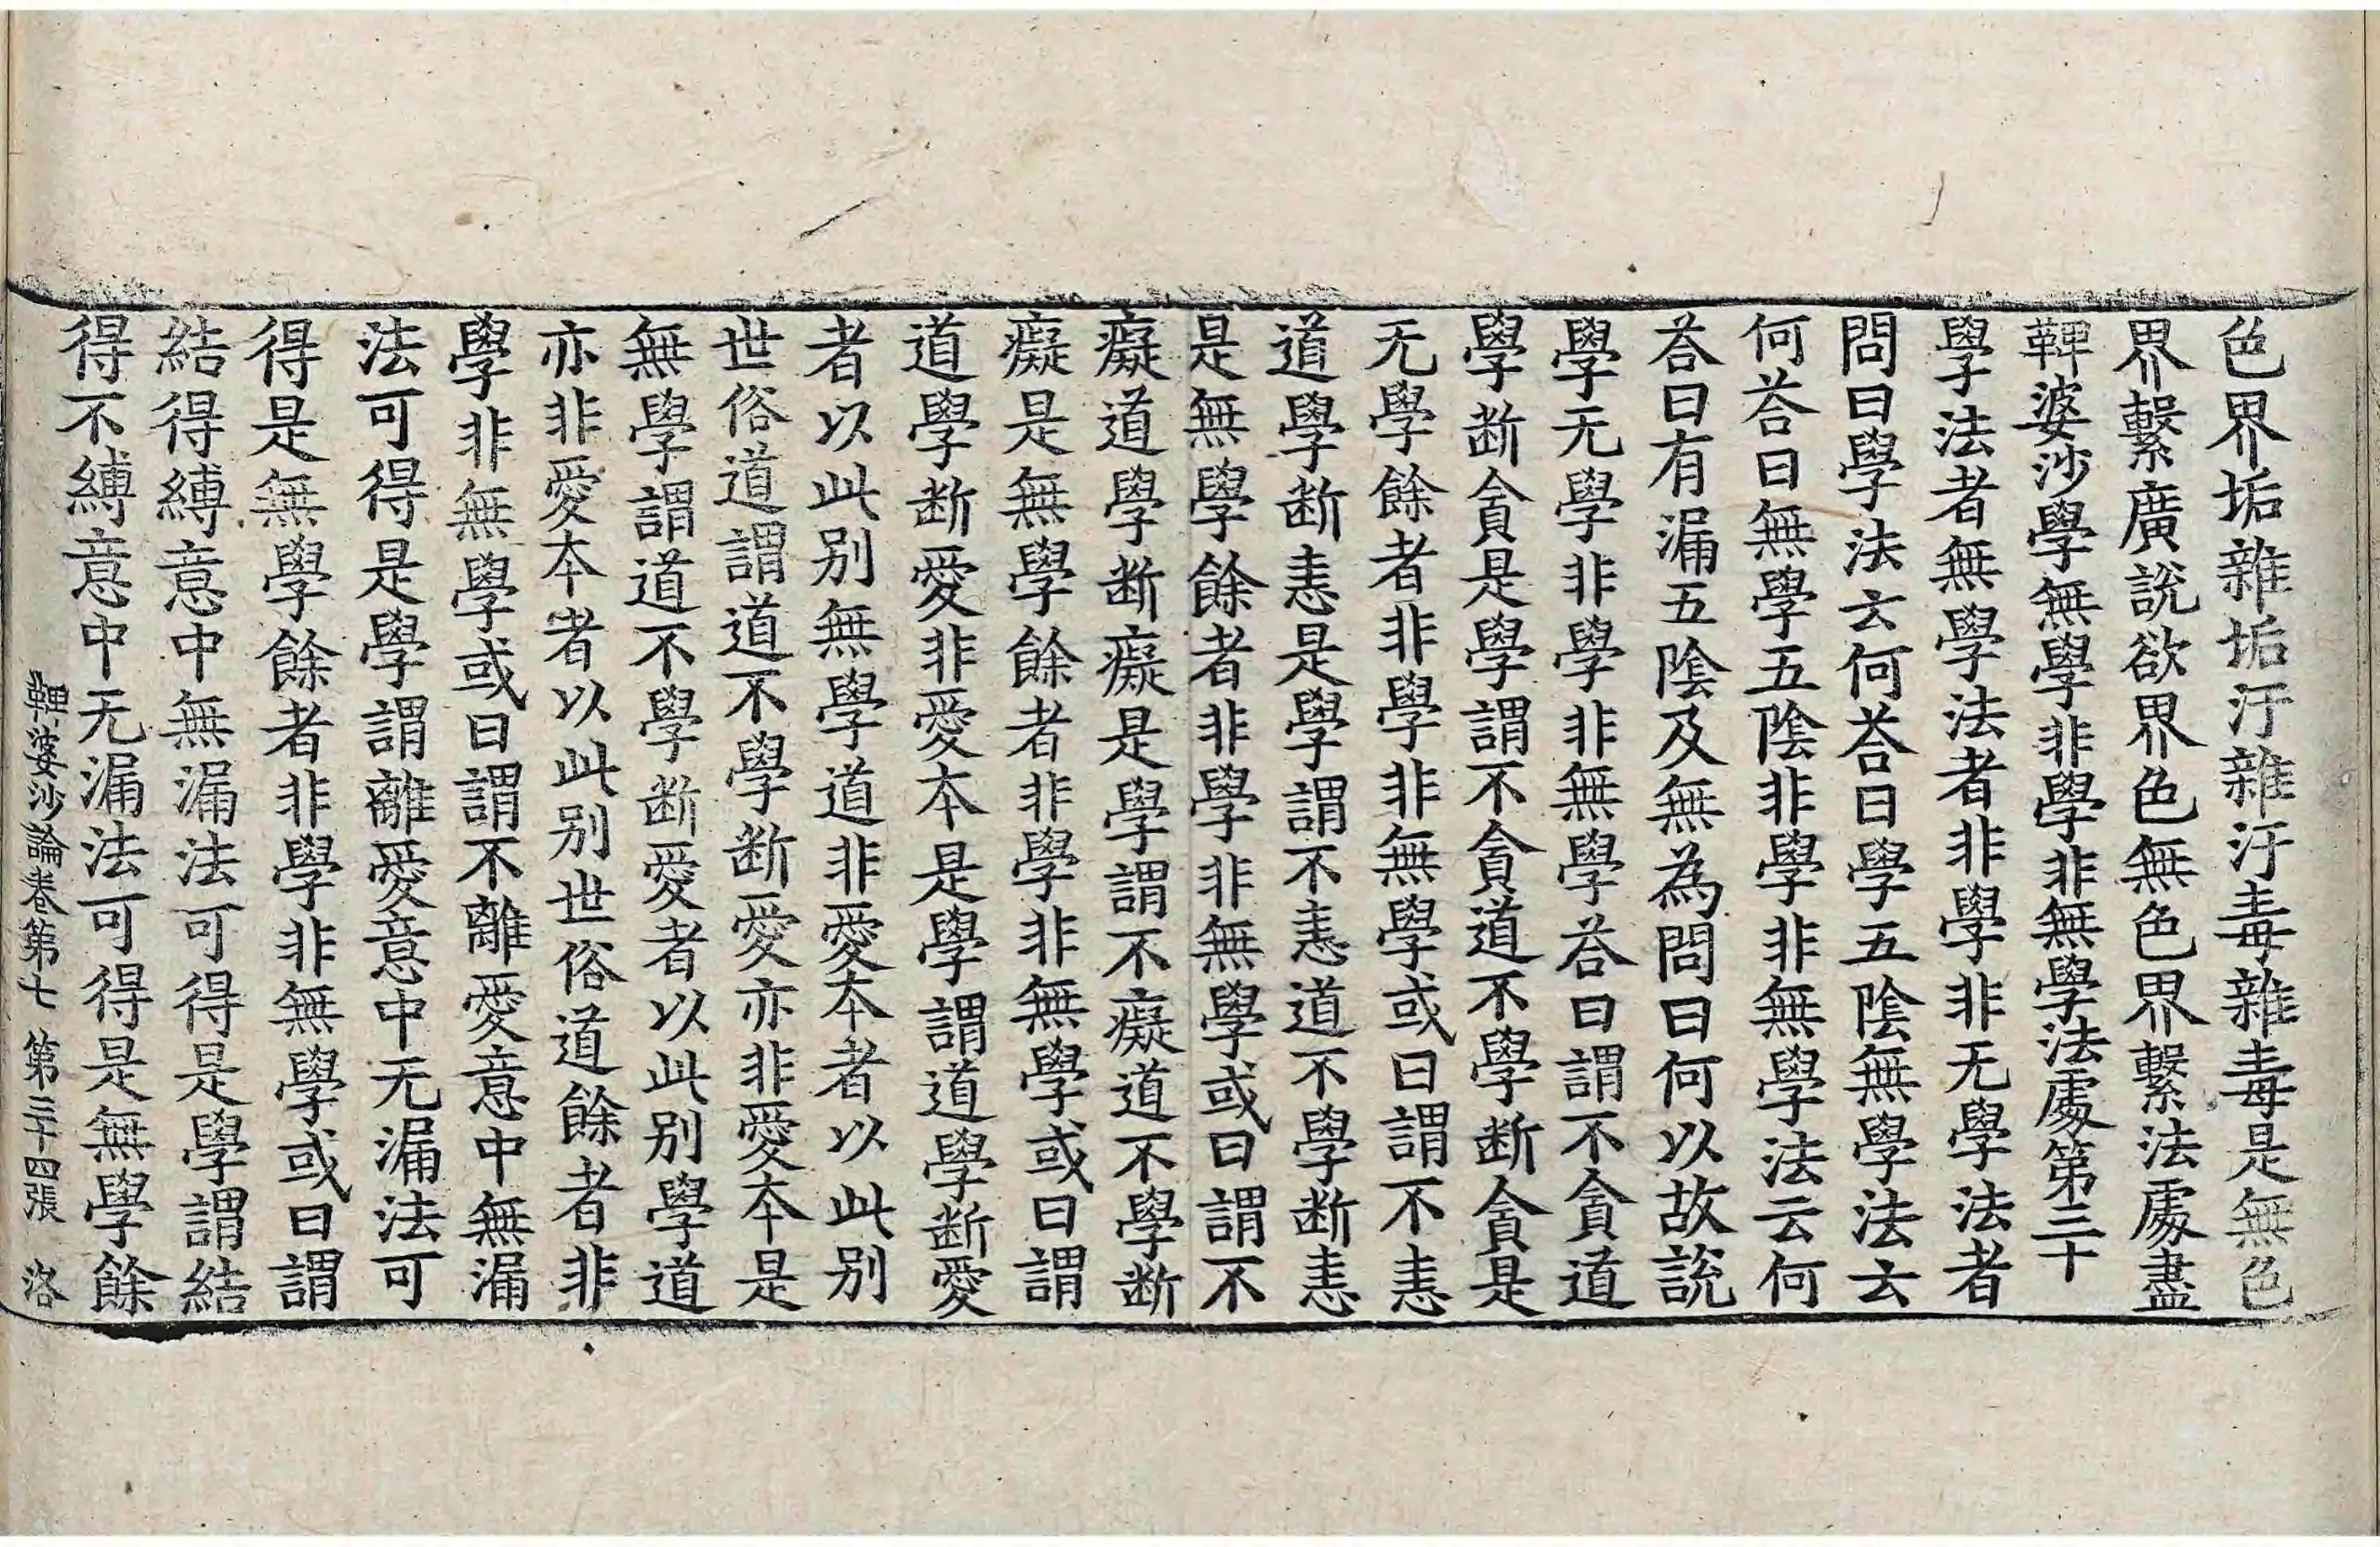 色界垢雜垢汙雜汙毒雜毒是無色
界繫廣說欲界色無色界繫法處盡
鞞婆沙學無學非學非無學法處第三十
學法者無學法者非學非无學法者
問曰學法云何荅曰學五陰無學法云
何荅曰無學五陰非學非無學法云何
荅曰有漏五陰及無為問曰何以故說
學无學非學非無學荅曰謂不貪道
學断貪是學謂不貪道不學断貪是
无學餘者非學非無學或曰謂不恚
道學断恚是學謂不恚道不學断恚
是無學餘者非學非無學或曰謂不
癡道學断癡是學謂不癡道不學断
癡是無學餘者非學非無學或曰謂
道學断愛非愛本是學謂道學断愛
者以此別無學道非愛本者以此別
世俗道謂道不學断愛亦非愛本是
無學謂道不學断愛者以此別學道
亦非愛本者以此別世俗道餘者非
學非無學或曰謂不離愛意中無漏
法可得是學謂離愛意中无漏法可
得是無學餘者非學非無學或曰謂
結得縛意中無漏法可得是學謂結
得不縛意中无漏法可得是無學餘
鞞婆沙論卷第七 第三十四張 洛